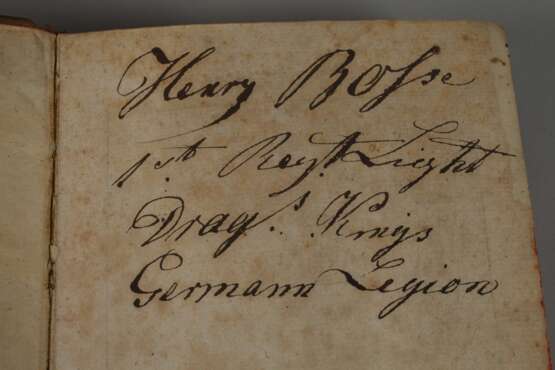 Henry Boſse
1st Regt. Light
Drags. Kings
Germann Legion